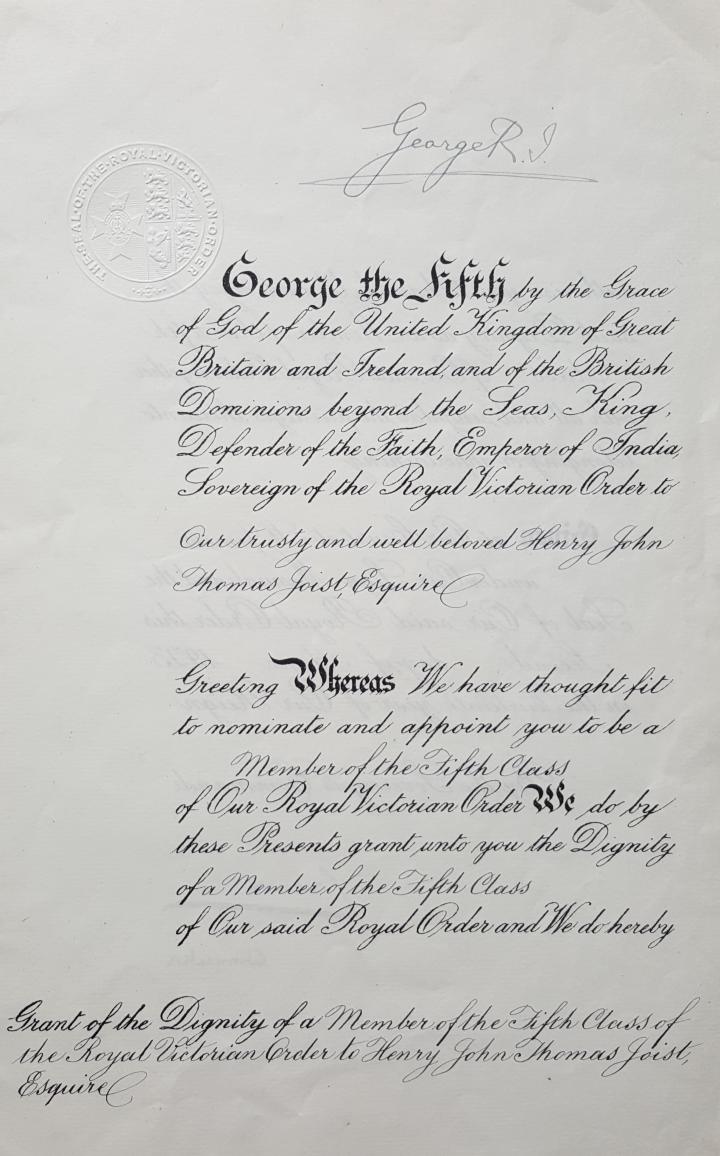 George R.I.
THE·SEAL·OF·THE·ROYAL·VICTORIAN·ORDER
George the Fifth by the Grace
of God, of the United Kingdom of Great
Britain and Ireland, and of the British
Dominions beyond the Seas, King,
Defender of the Faith, Emperor of India,
Sovereign of the Royal Victorian Order to
Our trusty and well beloved Henry John
Thomas Joist, Esquire
Greeting Whereas We have thought fit
to nominate and appoint you to be a
Member of the Fifth Class
of Our Royal Victorian Order We do by
these Presents grant unto you the Dignity
of a Member of the Fifth Class
of Our said Royal Order and We do hereby
Grant of the Dignity of a Member of the Fifth Class of
the Royal Victorian Order to Henry John Thomas Joist,
Esquire